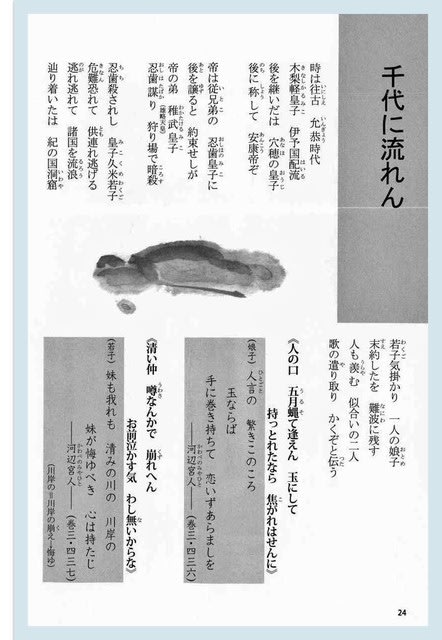 千代に流れん
時は往古 允恭時代
木梨軽皇子 伊予国配流
後を継いだは 穴穂の皇子
後に称して 安康帝ぞ
帝は従兄弟の 忍歯皇子に
後を譲ると 約束せしが
帝の弟 稚武皇子
忍歯謀り(雄略天皇) 狩り場で暗殺
忍歯殺されし 皇子久米若子
危難恐れて 供連れ逃げる
逃れ逃れて 諸国を流浪
辿り着いたは 紀の国洞窟
若子気掛かり 一人の娘子
末約したを 難波に残す
人も羨む 似合いの二人
歌の遣り取り かくぞと伝う
《人の口 五月蝿て逢えん 玉にして
持っとれたなら 焦がれはせんに》
(娘子)人言の 繁きこのころ
玉ならば
手に巻き持ちて 恋いずあらましを
――河辺宮人――(巻三・四三六)
《清い仲 噂なんかで 崩れへん
お前泣かす気 わし無いからな》
(若子)妹も我れも 清みの川の 川岸の
妹が悔ゆべき 心は持たじ
――河辺宮人――(巻三・四三七)
(川岸の=川岸の崩え→悔ゆ)
24